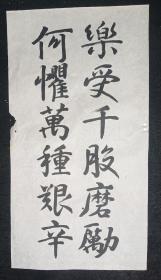 樂受千般磨勵
何懼萬種艱辛